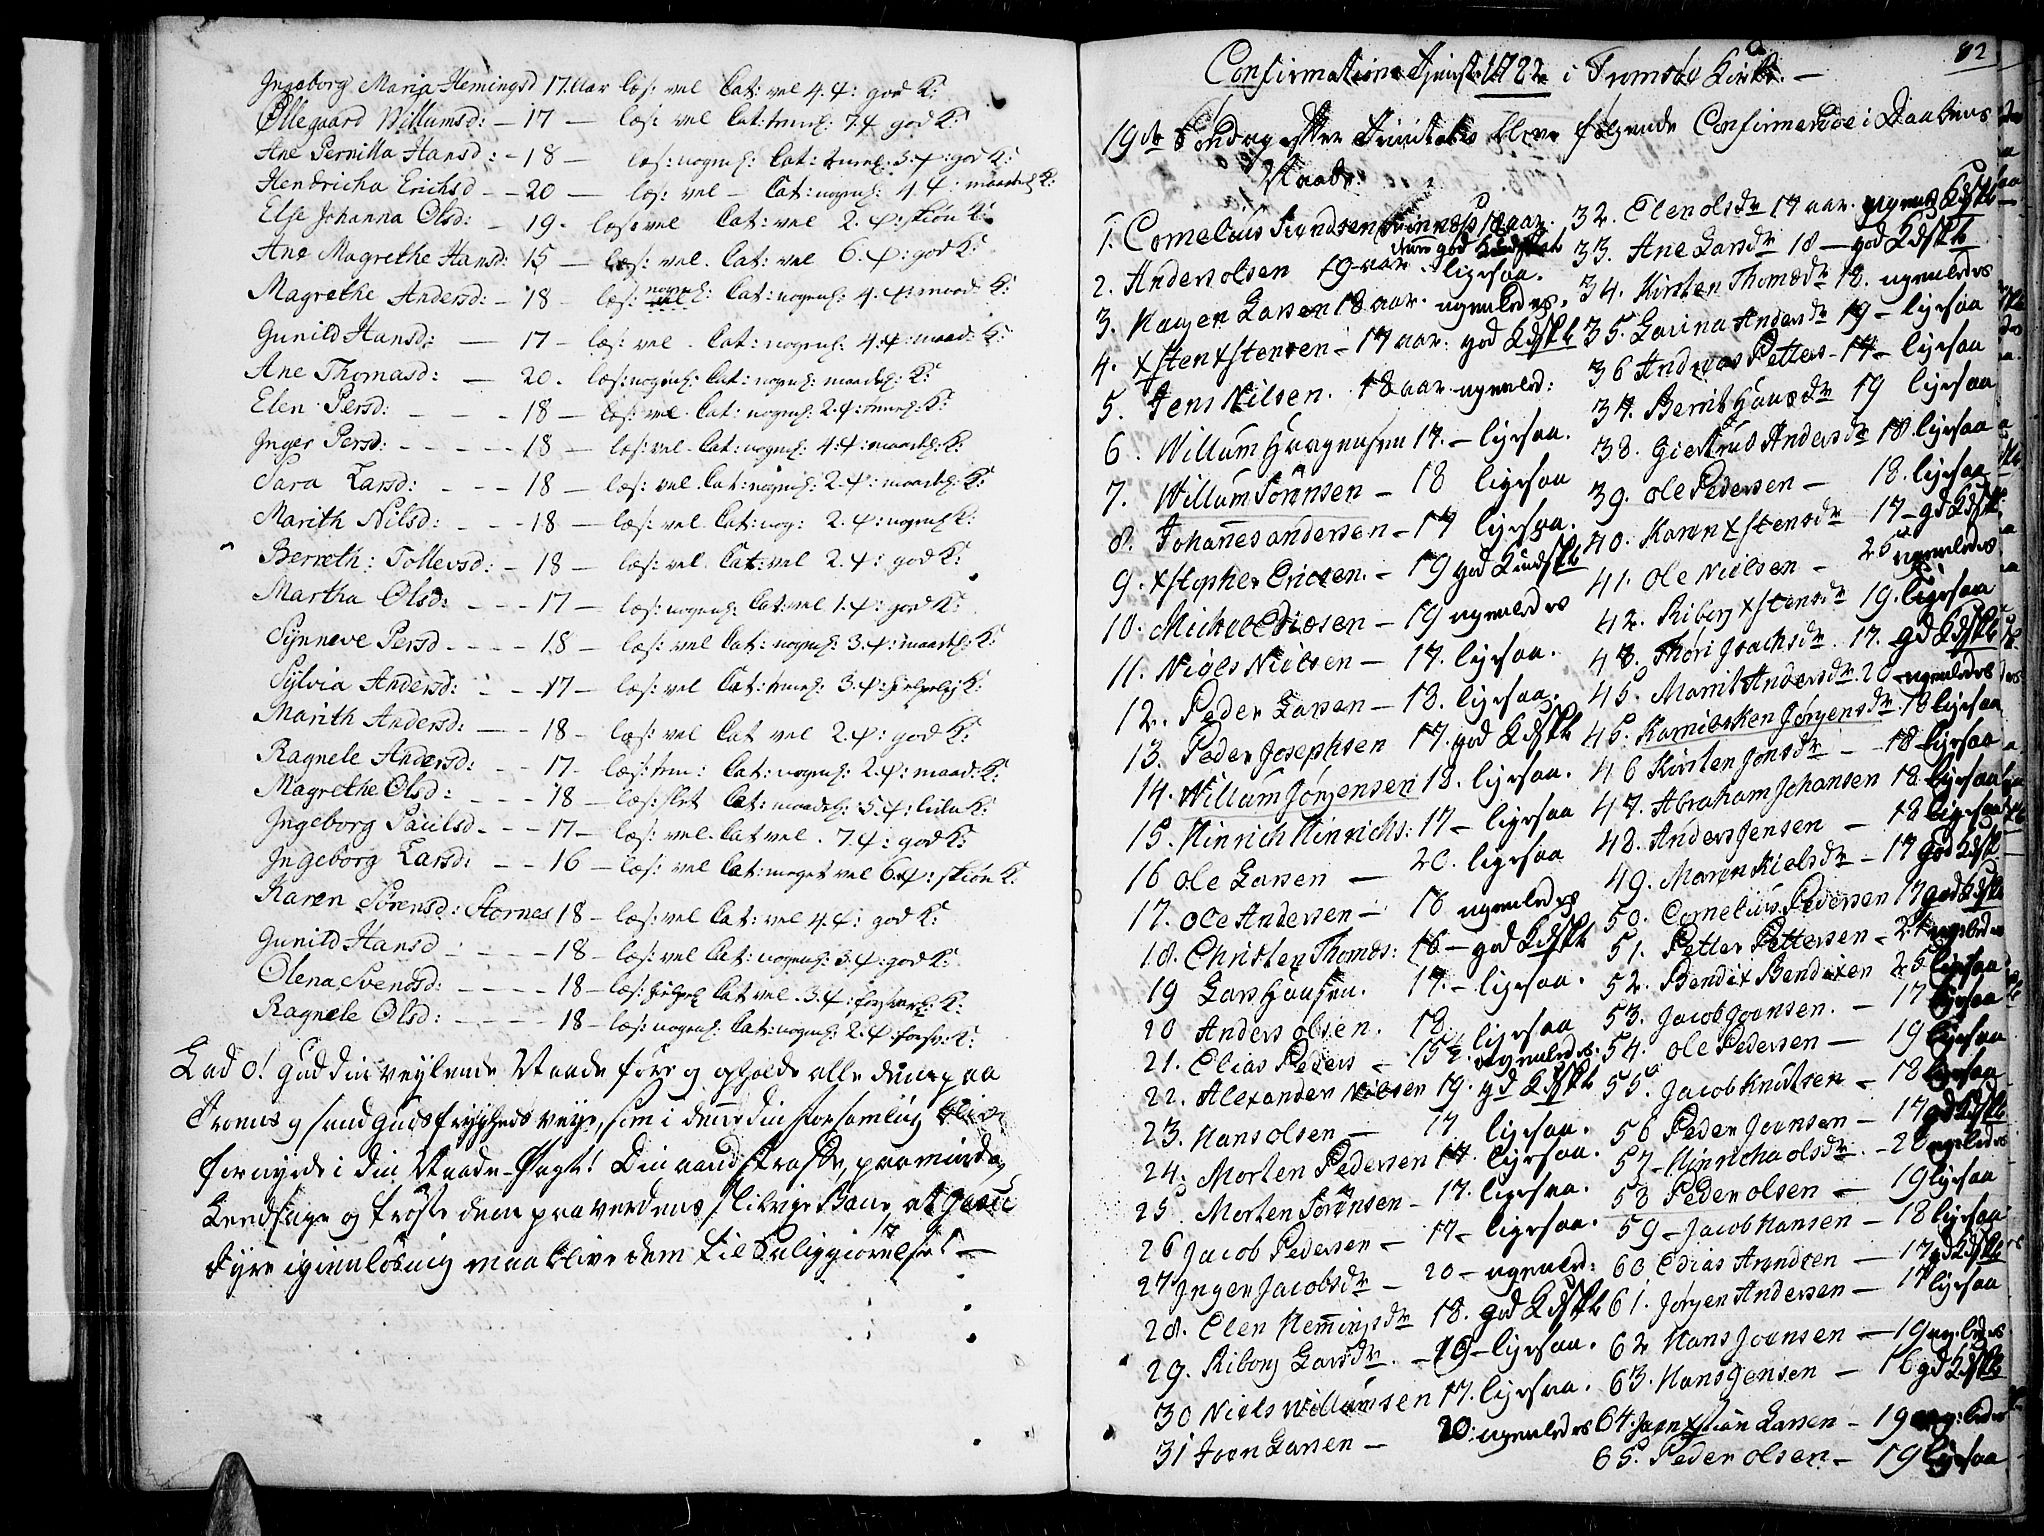 Ingeborg Maria Hemingsd 17. Aar læs: vel Cat: vel 4. P: god K:
Øllegaard Willumsd: - 17 - læs: vel Cat: temel: 7. P god K:
Ane Pernilla Hansd: - 18 - læs: nogenl: Cat: temel: 3. P: god K:
Hendricha Erichsd - - 20 - læs: vel - Cat: nogenl: 4. P: maadel: K:
Else Johanna Olsd: - 19. læs: vel Cat: vel 2. P: skiøn K:
Ane Magrethe Hansd: 15 - læs: vel. Cat: vel 6. P: god K:
Magrethe Andersd: - 18 - læs: nogenl: Cat: nogenl: 4. P: maad: K:
Gunild Hansd: - 17 - læs: vel - Cat: nogenl: 4. P: maad: K:
Ane Thomasd: - 20. læs: nogenl: Cat: nogenl: maadel: K:
Elen Persd: - - - 18 - læs: vel. Cat: nogenl: 2. P: temel: K:
Inger Persd: - - - - - 18 - læs: vel. Cat: nogenl: 4. P: maadel: K:
Sara Larsd: - - - 18 - læs: vel. Cat: nogenl: 2. P: maadel: K:
Marith Nilsd: - - - 18 - læs: vel. Cat: nog: 2. P: nogenl K:
Berreth: Tollevsd: - 18 - læs: vel. Cat: vel 2. P: god K:
Martha Olsd: - - - 17 - læs: nogenl: Cat: vel 1. P: god K:
Synneve Persd - - - - 18 - læs: vel Cat: nogenl: 3. P: maadel: K:
Sylvia Andersd: - - - 17 - læs: vel Cat: temel: 3. P: hielpelig K:
Marith Andersd: - - - 18 - læs: vel Cat vel 2. P: god K:
Ragnele Andersd: - - 17. læs: tem: Cat: nogenl: 2. P: maad: K:
Magrethe Olsd: - - - 18 - læs: slet Cat: maadel: 5. P: liden K:
Ingeborg Paulsd - - - 17 - læs: vel. Cat vel. 7. P: god K:
Ingeborg Larsd: - - 16 - læs: vel Cat: meget vel 6. P: skiøn K:
Karen Sørensd: Stornes 18 - læs: vel Cat: vel 4. P: god K:
Gunild Hansd - - - - - 18 - læs: vel Cat: nogenl: 3. P: god K:
Olena Svendsd: - - - - 18 - læs: hielpel Cat vel. 3. P: forsvarl: K:
Ragnele Olsd: - - - - 18 - læs: nogenl: Cat: nogenl: 2. P: forsv: K:
Lad O! Gud din veylende Naade føre og opholde alle disse paa
Troens og sand Gudsfrygtheds veye, som i denne din forsamling bleve
fornyede i din Naade-Pagt! Din aand straffe, paaminde,
Leedsage og trøste dem paa verdens slibrige Bane, at Jesu
dyre igienløsning maa blive dem til Saliggiørelse! -
82
Confirmations Tieniste 1782 i Tromsøe Kirke. -
19de Søndag efter Trinitatis bleve følgende Confirmerede i Daabens
Naade:
1. Cornelius Trondsen 18 aar.
god Kundskab
2. Anders Olsen 19 aar. ligesaa.
3. Haagen Larsen 18 aar. nogenledes.
4. Xsten Xstensen - 17 aar. god Kdskb
5. Jens Nilsen. 18 aar nogenled:
6. Willum Haagensen 17. - ligesaa.
7. Willum Sörensen - 18 ligesaa
8. Johannes Andersen - 17 ligesaa.
9. Xstopher Ericsen. - 19 god Kundskb
10. Mickel Ericsen - 19 nogenledes
11. Niels Nielsen - 17. ligesaa.
12. Peder Larsen - 18. ligesaa.
13. Peder Josephsen 17. god Kdskb
14. Willum Jørgensen 18. ligesaa.
15. Hinrich Hinrichs: 17 - ligesaa
16 Ole Larsen - 20. ligesaa
17. Ole Andersen - 18 nogenledes
18. Christen Thomæs: 16 - god Kdskb
19 Lars Hansen. 17. - ligesaa.
20 Anders Olsen. 18. ligesaa
21. Elias Peders - 15½ nogenledes.
22. Alexander Nielsen 19. gd Kdskb
23. Hans Olsen - 17 ligesaa.
24. Morten Pedersen 17. ligesaa.
25. Morten Sörensen - 17. ligesaa.
26 Jacob Pedersen - 17 - ligesaa.
27 Inger Jacobsdr - 20 - nogenled:
28. Elen Hemmingsdr 18. god Kdskb
29. Riborg Larsdr. - 16 - ligesaa.
30 Niels Willumsen 17. ligesaa.
31 Joen Larsen - 20. nogenledes
32. Elen Olsdr 17 aar. nogenl Kdskb -
33. Ane Larsdr 18 - god Kdskb
34. Kirsten Thomædr 18. nogenledes
35. Larina Andersdr 19 - ligesaa
36 Andreas Petters - 17 - ligesaa
37. Berrit Hansdr 19 ligesaa
38. Giertrud Andersdr 18. ligesaa
39. Ole Pedersen - 18. ligesaa
40. Karen Xstensdr 17 - gd Kdskb
41. Ole Nielsen - 25 nogenledes
42. Riborg Xstensdr 19. ligesaa
43. Thøri Joachsdr. 17. gd Kdskb
45. Marrit Andersdr. 20 nogenledes
45. Karnielsken Jørgensdr. 18 ligesaa
46 Kirsten Jonsdr - - 18 ligesaa
47. Abraham Johansen 18 ligesaa
48. Anders Jensen - 18 ligesaa
49. Maren Nielsdr - 17 god Kdskb
50. Cornelius Pedersen 17 god Kdskb
51. Petter Pettersen - 21 nogenledes
52. Bendix Bendixen 25 ligesaa
53. Jacob Joensen. - 17 ligesaa
54. Ole Pedersen - 19 ligesaa
55. Jacob Knutsen - 18 ligesaa
56 Peder Joensen - 17 gd Kdskb
57 - Hinricha Olsdr. - 20 nogenledes
58 Peder Olsen - 19 ligesaa
59 - Jacob Hansen - 18 ligesaa
60 Elias Arendsen - 17 gd Kdskb
61. Jørgen Andersen - 17 ligesaa
62 Hans Joensen - 19 nog. ledes
63. Hans Jensen - 16 gd Kdskb
64. Jaen Xstian Larsen - 19 nog: ledes
65. Peder Olsen - 19 ligesaa